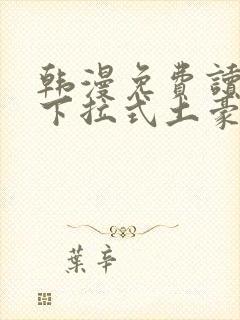 韩漫免費讀
下拉式土豪
葉辛